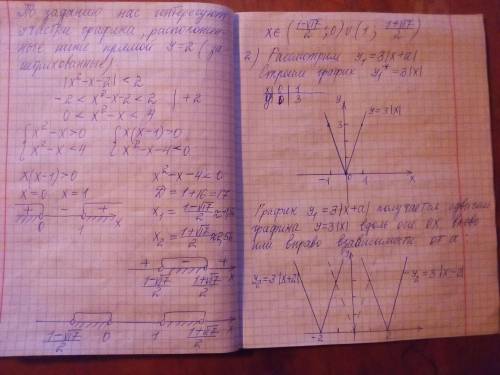 По заданию нас интересуют
участки графика, расположен-
ные ниже прямой y=2 (за
штрихованные)
|x²-x-2| < 2
-2 < x²-x-2 < 2 | +2
0 < x²-x < 4
{x²-x>0 {x(x-1)>0
{x²-x<4 {x²-x-4<0
x(x-1)>0
x=0 x=1
+ - +
0 1 x
x²-x-4<0
D=1+16=17
x₁=(1-√17)/2
x₂=(1+√17)/2≈2,56
+ - +
(1-√17)/2 (1+√17)/2 x
(1-√17)/2 0 1 (1+√17)/2 x
x∈((1-√17)/2; 0)∪(1; (1+√17)/2)
2) Рассмотрим y₁=3|x+a|
Строим график y₁*=3|x|
x 0 1
y 0 3
y
y=3|x|
3
-1 0 1 x
График y₁=3|x+a| получается сдвигом
графика y=3|x| вдоль оси OX влево
или вправо взависимости от a
y₂=3|x+2| y y₂=3|x-2|
-2 2 x